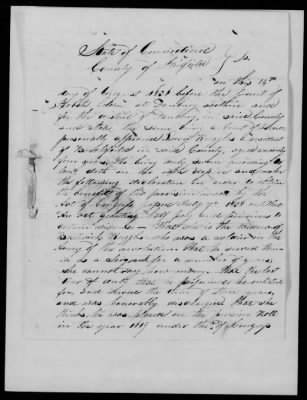 State of Connecticut
County of Fairfield } Ss.
on this 14th
day of Augst 1838 before the Court of
Probate holden at Danbury within and
for the district of Danbury, in said County
and State, the same being a Court of Record
personally appeared a resident
of in said County, aged seventy
four years, who being duly sworn according to
law doth on her oath depose and make
the following declaration in order to obtain
the benefit of the provision made by the
Act of Congress passed July 7th 1838 entitled
"An act granting half pay and pensions to
certain widows" — That she is the widow of
who was a in the
army of the revolution — That he served therein
as a for a number of years,
she cannot say how many. That the last
Tour of duty that he performed he enlisted
for and served the time of three years,
and was honorably discharged. That she
thinks he was placed on the pension roll
in the year 1819 under the act of Congress